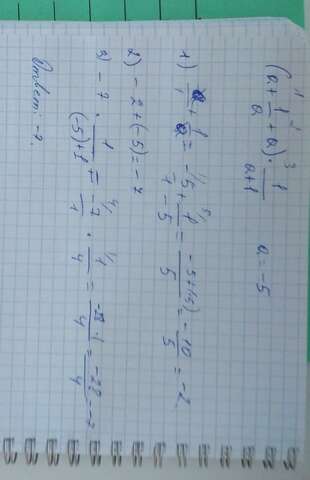 (a + 1/a + a) · 1/(a+1)   a = -5
1) a/1 + 1/a = -5/1 + 1/-5 = (-5+(-5))/5 = -10/5 = -2
2) -2+(-5) = -7
3) -7 · 1/((-5)+1) = -7/1 · 1/4 = -28·1/4 = -28/4 = -7
Ответ: -7.